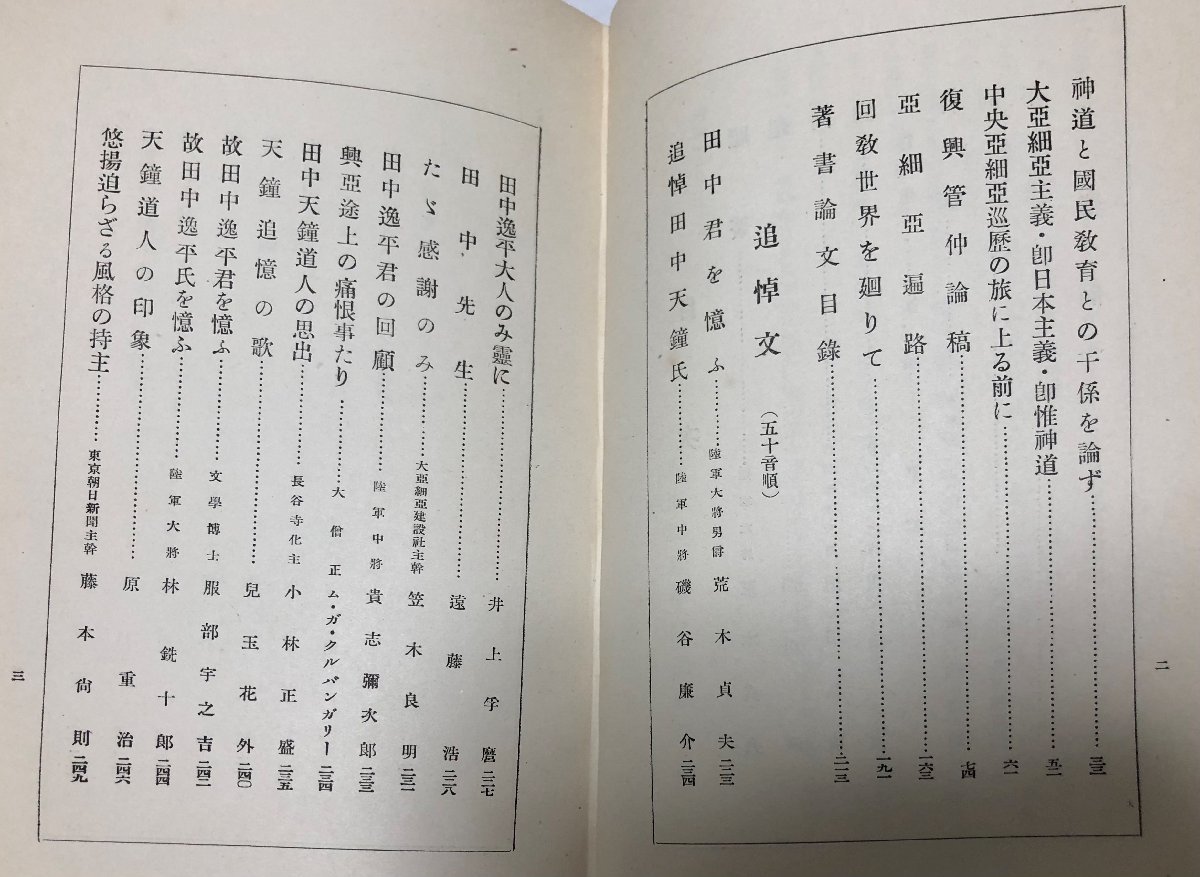 神道と國民敎育との干係を論ず
大亞細亞主義・卽日本主義・卽惟神道
中央亞細亞巡歷の旅に上る前に
復興管仲論稿
亞細亞遍路
回敎世界を廻りて
著書論文目錄
追悼文（五十音順）
田中君を憶ふ 陸軍大將男爵 荒木貞夫
追悼田中天鐘氏 陸軍中將 磯谷廉介
二
田中逸平大人のみ靈に 井上孚麿 二二七
田中先生 遠藤浩 二二八
たゞ感謝のみ 大亞細亞建設社主幹 笠木良明
田中逸平君の回顧 陸軍中將 貴志彌次郞
興亞途上の痛恨事たり 大僧正 ム・ガ・クルバンガリー 二三四
田中天鐘道人の思出 長谷寺化主 小林正盛 二三五
天鐘追憶の歌 兒玉花外 二四〇
故田中逸平君を憶ふ 文學博士 服部宇之吉 二四二
故田中逸平氏を憶ふ 陸軍大將 林銑十郞 二四四
天鐘道人の印象 原重治 二四六
悠揚迫らざる風格の持主 東京朝日新聞主幹 藤本尙則 二四九
三